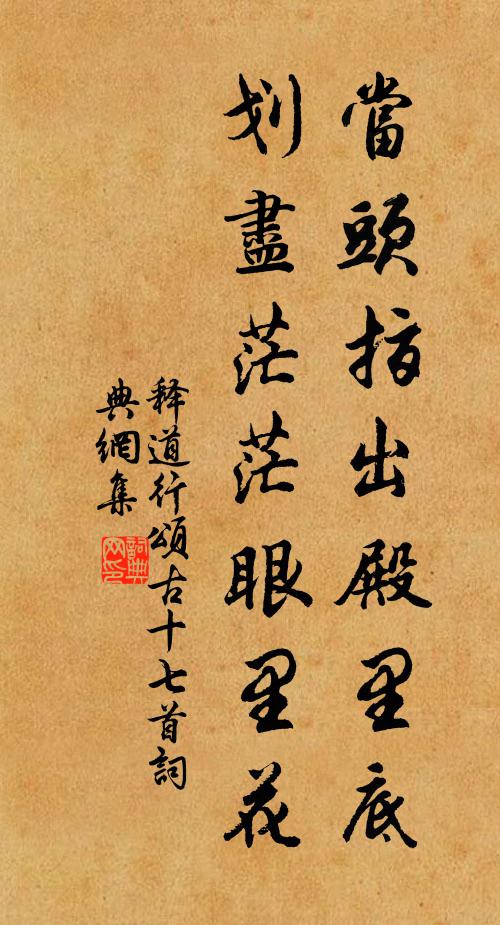 當頭指出殿里底
划盡茫茫眼里花
释道行頌古十七首詞
典網集
詞典
网印